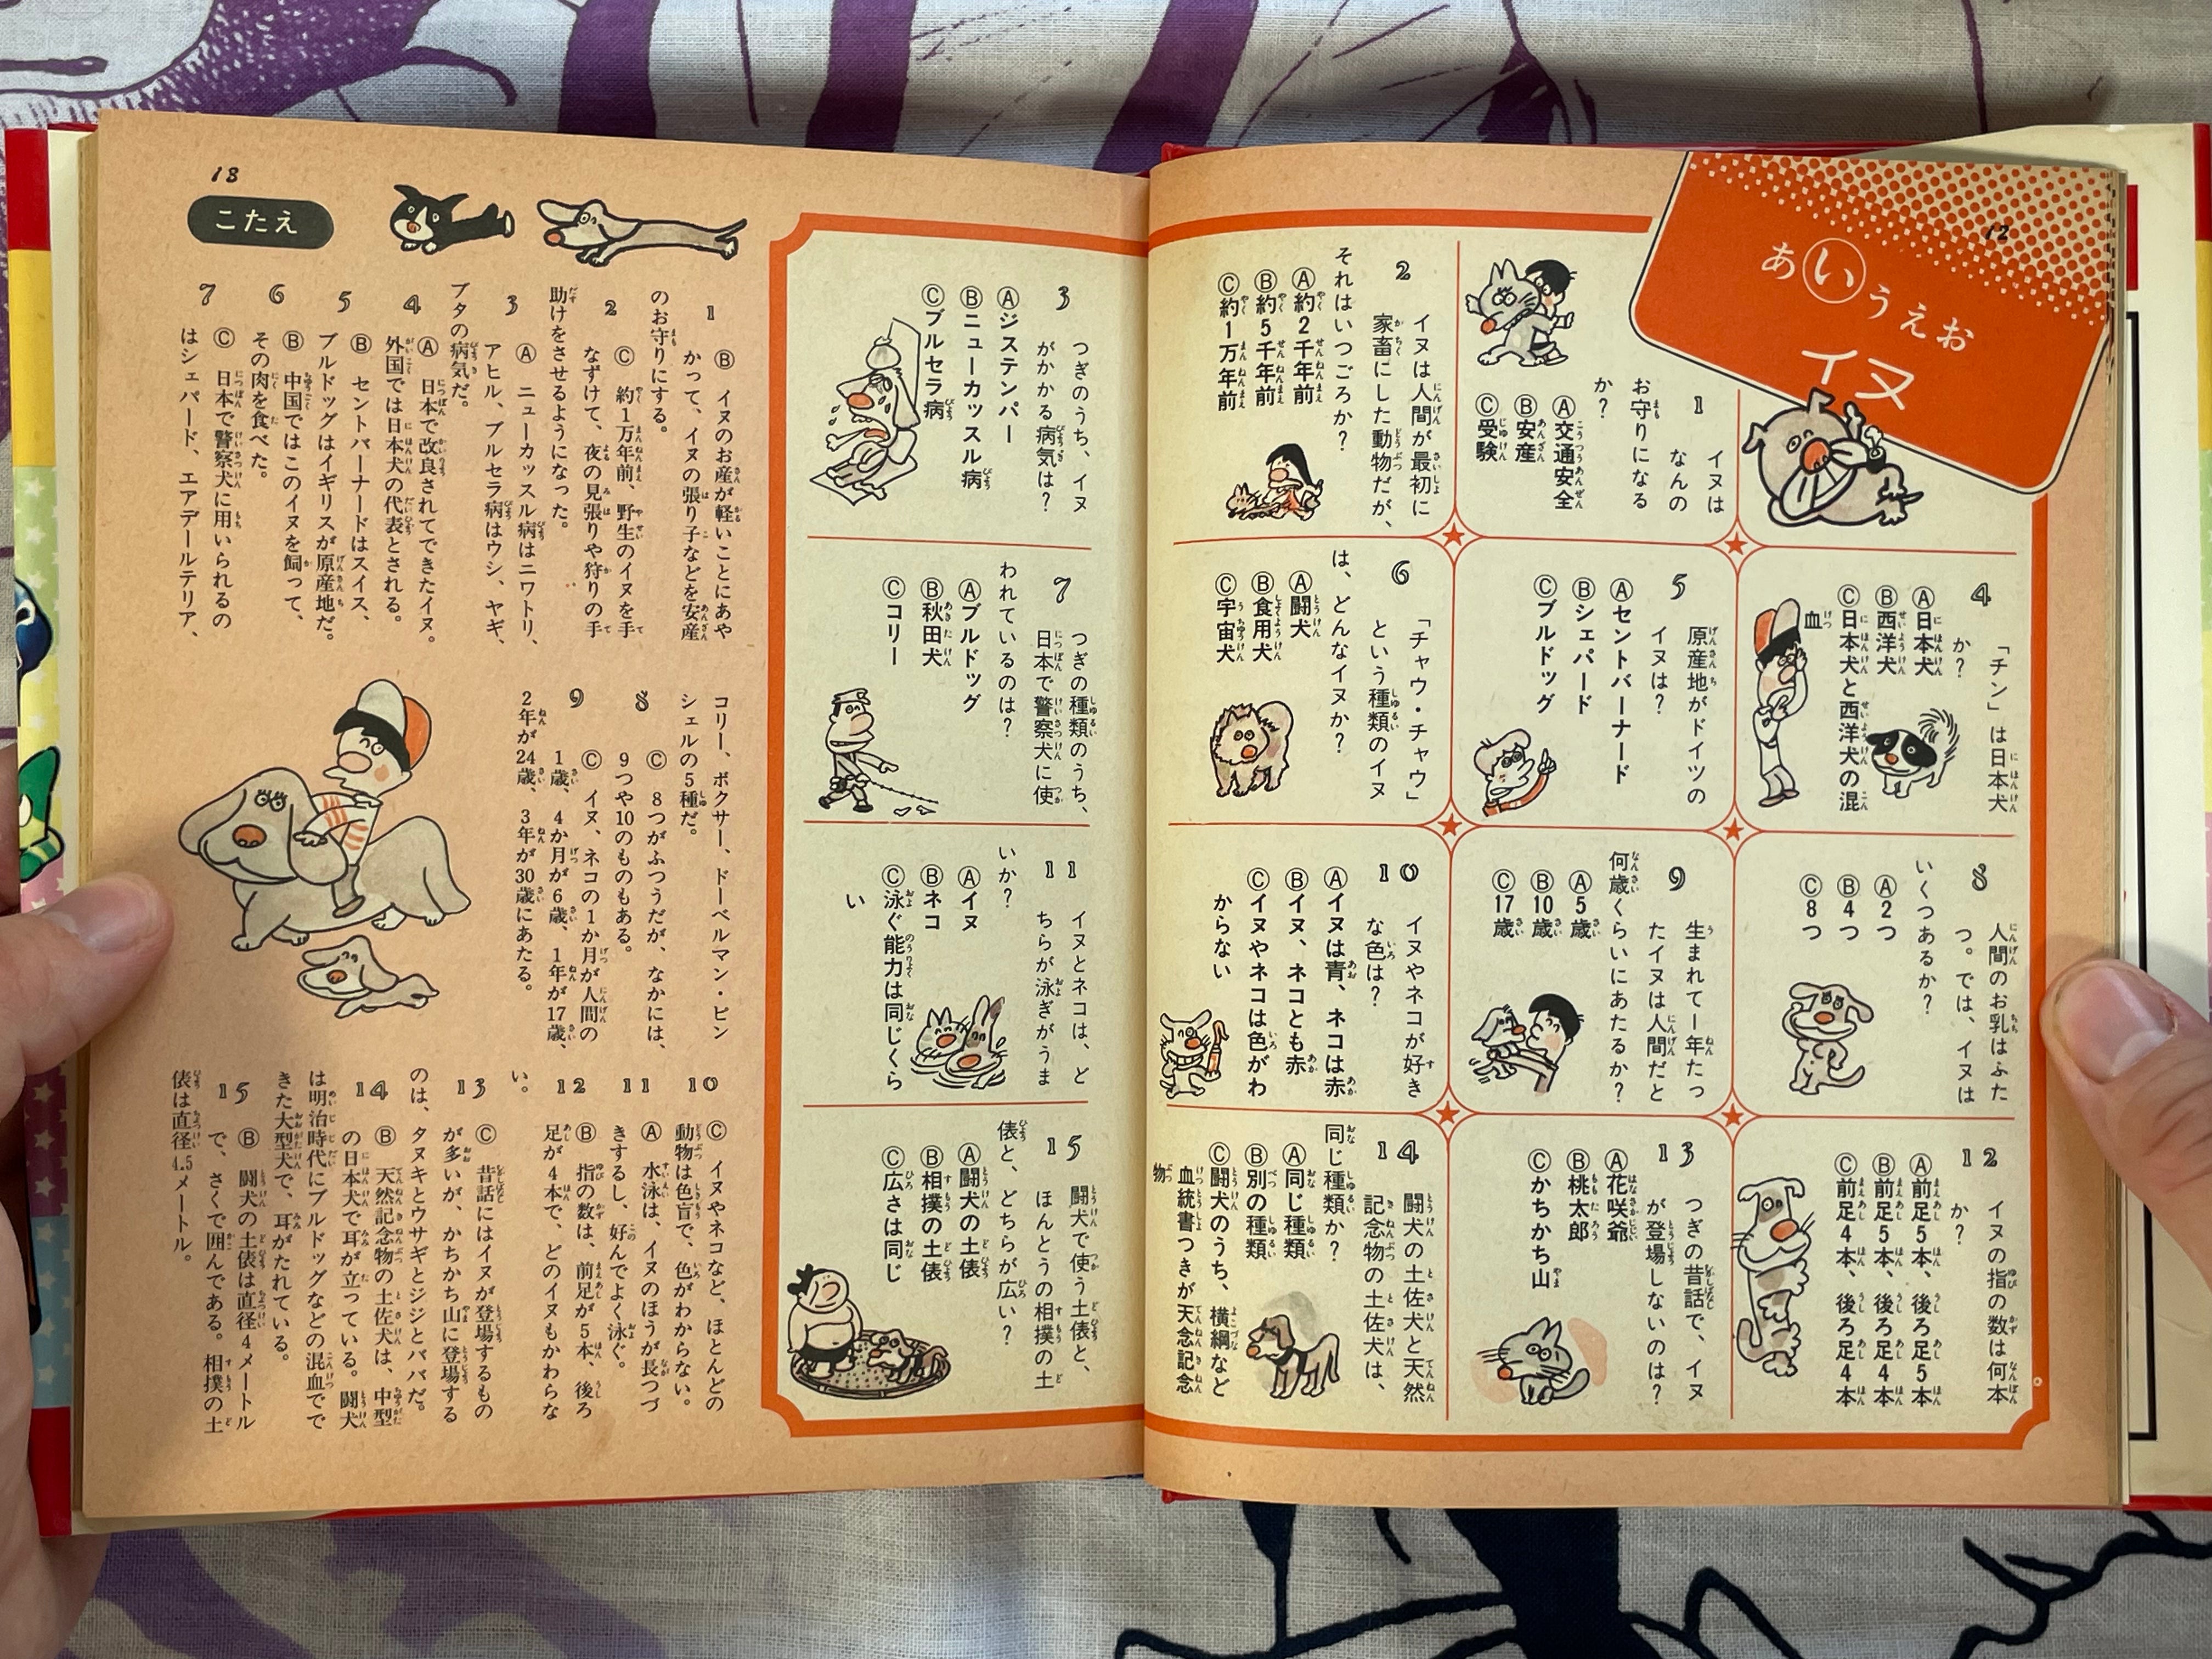 12
あいうえお
イヌ
1 イヌは
なんの
お守りになる
か?
Ⓐ交通安全
Ⓑ安産
Ⓒ受験
2 イヌは人間が最初に
家畜にした動物だが、
それはいつごろか?
Ⓐ約2千年前
Ⓑ約5千年前
Ⓒ約1万年前
3 つぎのうち、イヌ
がかかる病気は?
Ⓐジステンパー
Ⓑニューカッスル病
Ⓒブルセラ病
4 「チン」は日本犬
か?
Ⓐ日本犬
Ⓑ西洋犬
Ⓒ日本犬と西洋犬の混
血
5 原産地がドイツの
イヌは?
Ⓐセントバーナード
Ⓑシェパード
Ⓒブルドッグ
6 「チャウ・チャウ」
という種類のイヌ
は、どんなイヌか?
Ⓐ闘犬
Ⓑ食用犬
Ⓒ宇宙犬
7 つぎの種類のうち、
日本で警察犬に使
われているのは?
Ⓐブルドッグ
Ⓑ秋田犬
Ⓒコリー
8 人間のお乳はふた
つ。では、イヌは
いくつあるか?
Ⓐ2つ
Ⓑ4つ
Ⓒ8つ
9 生まれて一年たっ
たイヌは人間だと
何歳くらいにあたるか?
Ⓐ5歳
Ⓑ10歳
Ⓒ17歳
10 イヌやネコが好き
な色は?
Ⓐイヌは青、ネコは赤
Ⓑイヌ、ネコとも赤
Ⓒイヌやネコは色がわ
からない
11 イヌとネコは、ど
ちらが泳ぎがうま
いか?
Ⓐイヌ
Ⓑネコ
Ⓒ泳ぐ能力は同じくら
い
12 イヌの指の数は何本
か?
Ⓐ前足5本、後ろ足5本
Ⓑ前足5本、後ろ足4本
Ⓒ前足4本、後ろ足4本
13 つぎの昔話で、イヌ
が登場しないのは?
Ⓐ花咲爺
Ⓑ桃太郎
Ⓒかちかち山
14 闘犬の土佐犬と天然
記念物の土佐犬は、
同じ種類か?
Ⓐ同じ種類
Ⓑ別の種類
Ⓒ闘犬のうち、横綱など
血統書つきが天念記念
物
15 闘犬で使う土俵と、
ほんとうの相撲の土
俵と、どちらが広い?
Ⓐ闘犬の土俵
Ⓑ相撲の土俵
Ⓒ広さは同じ
13
こたえ
1 Ⓑ イヌのお産が軽いことにあや
かって、イヌの張り子などを安産
のお守りにする。
2 Ⓒ 約1万年前、野生のイヌを手
なずけて、夜の見張りや狩りの手
助けをさせるようになった。
3 Ⓐ ニューカッスル病はニワトリ、
アヒル、ブルセラ病はウシ、ヤギ、
ブタの病気だ。
4 Ⓐ 日本で改良されてできたイヌ。
外国では日本犬の代表とされる。
5 Ⓑ セントバーナードはスイス、
ブルドッグはイギリスが原産地だ。
6 Ⓑ 中国ではこのイヌを飼って、
その肉を食べた。
7 Ⓒ 日本で警察犬に用いられるの
はシェパード、エアデールテリア、
コリー、ボクサー、ドーベルマン・ピン
シェルの5種だ。
8 Ⓒ 8つがふつうだが、なかには、
9つや10のものもある。
9 Ⓒ イヌ、ネコの1か月が人間の
1歳、4か月が6歳、1年が17歳、
2年が24歳、3年が30歳にあたる。
10 Ⓒ イヌやネコなど、ほとんどの
動物は色盲で、色がわからない。
11 Ⓐ 水泳は、イヌのほうが長つづ
きするし、好んでよく泳ぐ。
12 Ⓑ 指の数は、前足が5本、後ろ
足が4本で、どのイヌもかわらな
い。
13 Ⓒ 昔話にはイヌが登場するもの
が多いが、かちかち山に登場する
のは、タヌキとウサギとジジとババだ。
14 Ⓑ 天然記念物の土佐犬は、中型
の日本犬で耳が立っている。闘犬
は明治時代にブルドッグなどの混血でで
きた大型犬で、耳がたれている。
15 Ⓑ 闘犬の土俵は直径4メートル
で、さくで囲んである。相撲の土
俵は直径4.5メートル。